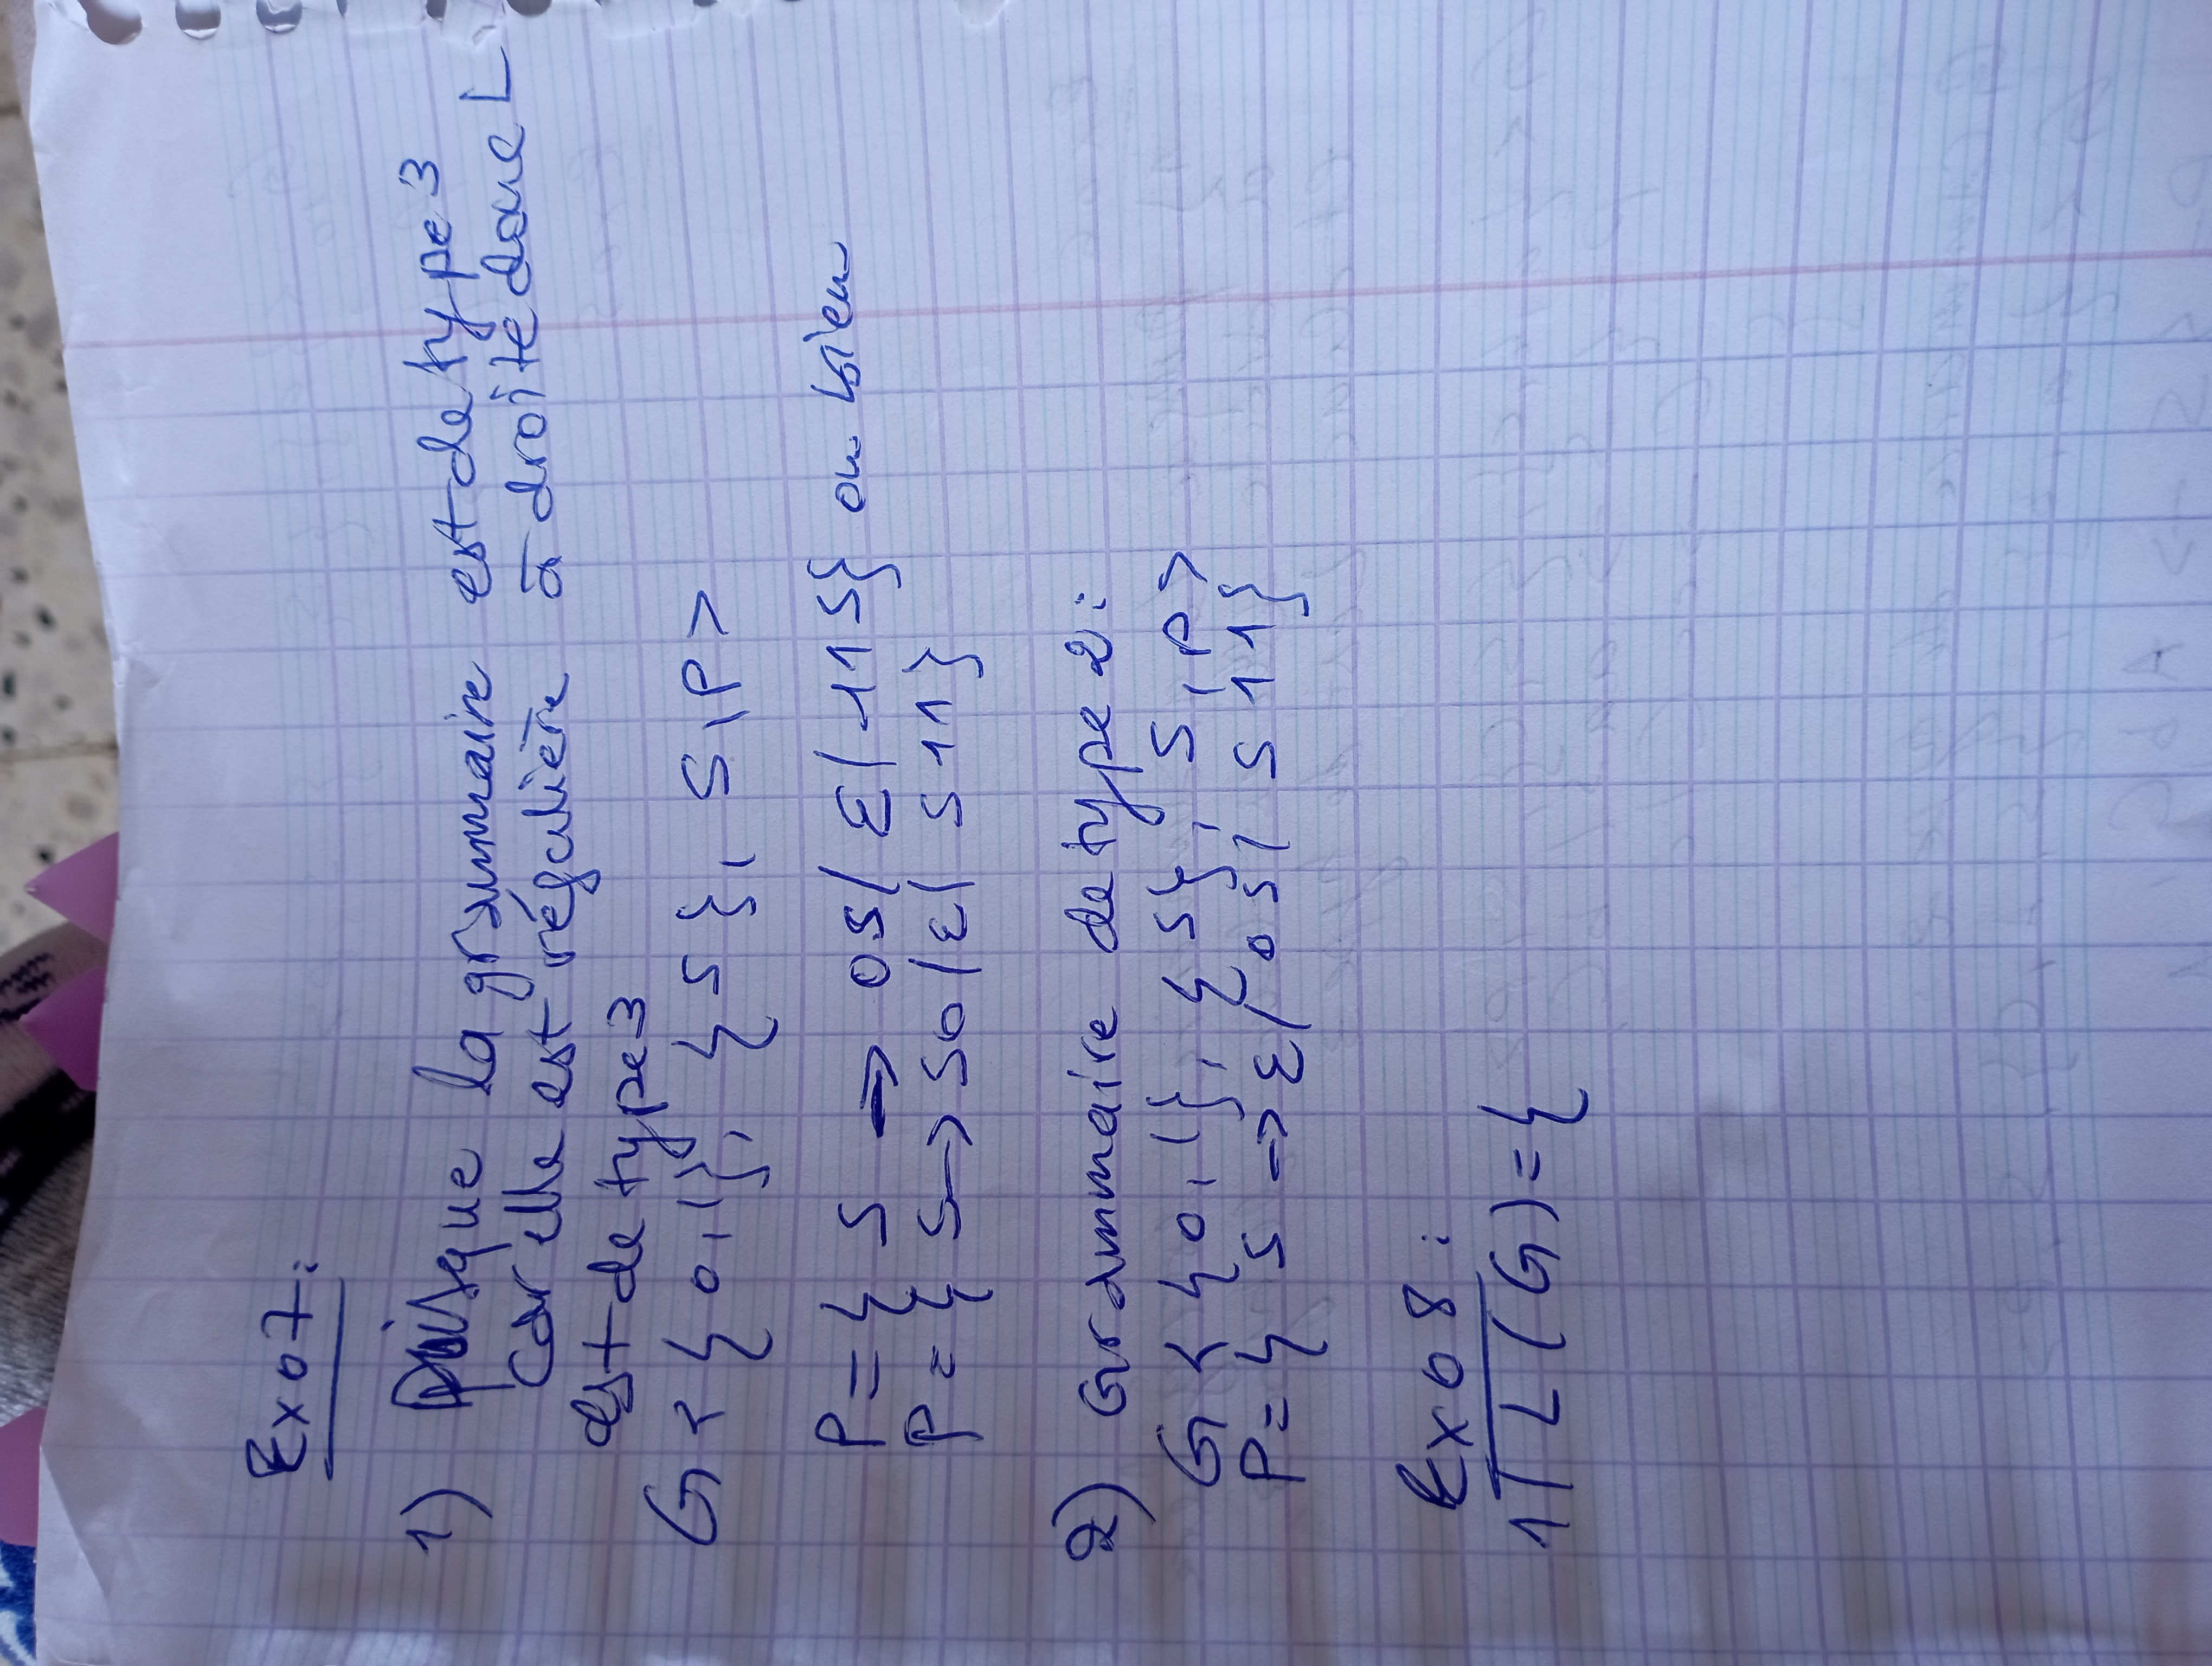 Exo7:
1) Puisque la grammaire est de type 3
Car elle est régulière à droite donc L
est de type 3
G < { 0,1}, { S }, S, P >
P = { S → 0S / Ɛ / 11S} ou bien
P = { S → S0 / Ɛ / S11}
2) Grammaire de type 2:
G < { 0,1}, { S}, S, P >
P = { S → Ɛ / 0S / S11}
Exo8:
1) L(G) = {